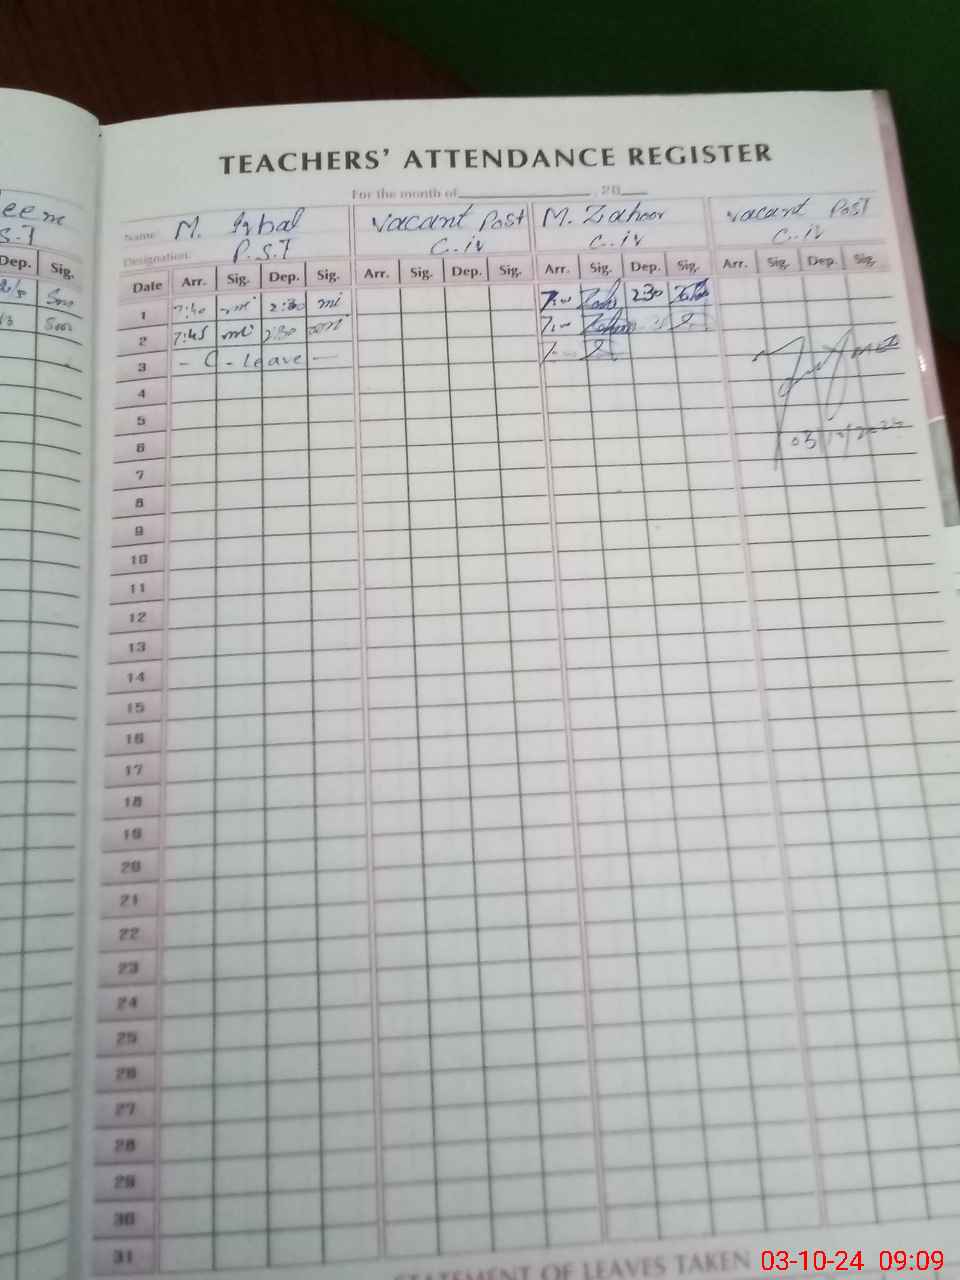 TEACHERS' ATTENDANCE REGISTER
For the month of , 20
Name M. Iqbal Vacant Post M. Zahoor Vacant Post
Designation P.S.T C.iv C.iv C.iv
Dep. Sig. Date Arr. Sig. Dep. Sig. Arr. Sig. Dep. Sig. Arr. Sig. Dep. Sig. Arr. Sig. Dep. Sig.
1 7:40 mi 2:30 mi 7:00 2:30
2 7:45 mi 2:30 7:00
3 - C - Leave -
4
5
6
7
8
9
10
11
12
13
14
15
16
17
18
19
20
21
22
23
24
25
26
27
28
29
30
31
STATEMENT OF LEAVES TAKEN
03-10-24 09:09